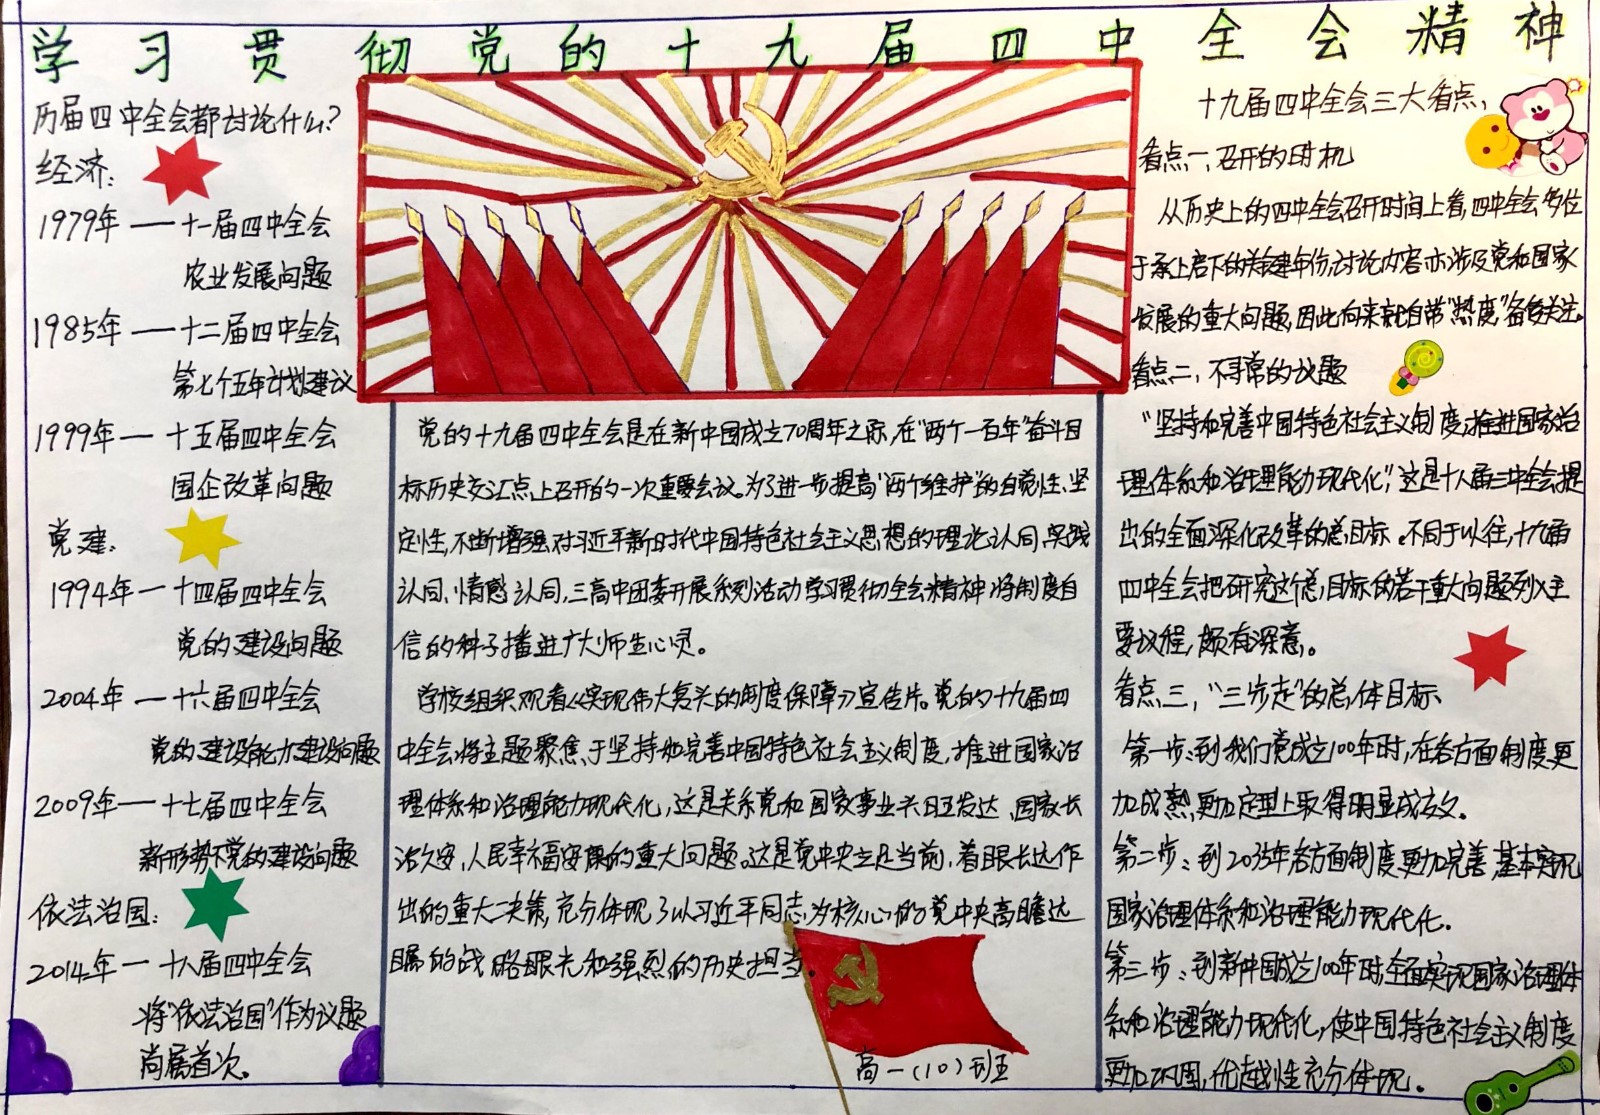 学习贯彻党的十九届四中全会精神
历届四中全会都讨论什么?
经济:
1979年——十一届四中全会
农业发展问题
1985年——十二届四中全会
第七个五年计划建议
1999年—十五届四中全会
国企改革问题
党建:
1994年—十四届四中全会
党的建设问题
2004年—十六届四中全会
党的建设能力建设问题
2009年—十七届四中全会
新形势下党的建设问题
依法治国:
2014年—十八届四中全会
将“依法治国”作为议题
尚属首次。
党的十九届四中全会是在新中国成立70周年之际,在“两个一百年”奋斗目
标历史交汇点上召开的一次重要会议。为了进一步提高“两个维护”的自觉性、坚
定性,不断增强对习近平新时代中国特色社会主义思想的理论认同、实践
认同、情感认同,三高中团委开展系列活动学习贯彻全会精神,将制度自
信的种子播进广大师生心灵。
学校组织观看《实现伟大复兴的制度保障》宣传片。党的十九届四
中全会将主题聚焦于坚持和完善中国特色社会主义制度,推进国家治
理体系和治理能力现代化,这是关系党和国家事业兴旺发达、国家长
治久安,人民幸福安康的重大问题。这是党中央立足当前,着眼长远作
出的重大决策,充分体现了以习近平同志为核心的党中央高瞻远
瞩的战略眼光和强烈的历史担当。
高一(10)班
十九届四中全会三大看点,
看点一,召开的时机
从历史上的四中全会召开时间上看,四中全会多位
于承上启下的关键年份,讨论内容亦涉及党和国家
发展的重大问题,因此向来就自带“热度”备受关注。
看点二,不寻常的议题
“坚持和完善中国特色社会主义制度,推进国家治
理体系和治理能力现代化”,这是十八届三中全会提
出的全面深化改革的总目标。不同于以往,十九届
四中全会把研究这个总目标的若干重大问题列入主
要议程,颇有深意。
看点三,“三步走”的总体目标
第一步:到我们党成立100年时,在各方面制度更
加成熟更加定型上取得明显成效。
第二步:到2035年各方面制度更加完善,基本实现
国家治理体系和治理能力现代化。
第三步:到新中国成立100年时,全面实现国家治理体
系和治理能力现代化,使中国特色社会主义制度
更加巩固,优越性充分体现。